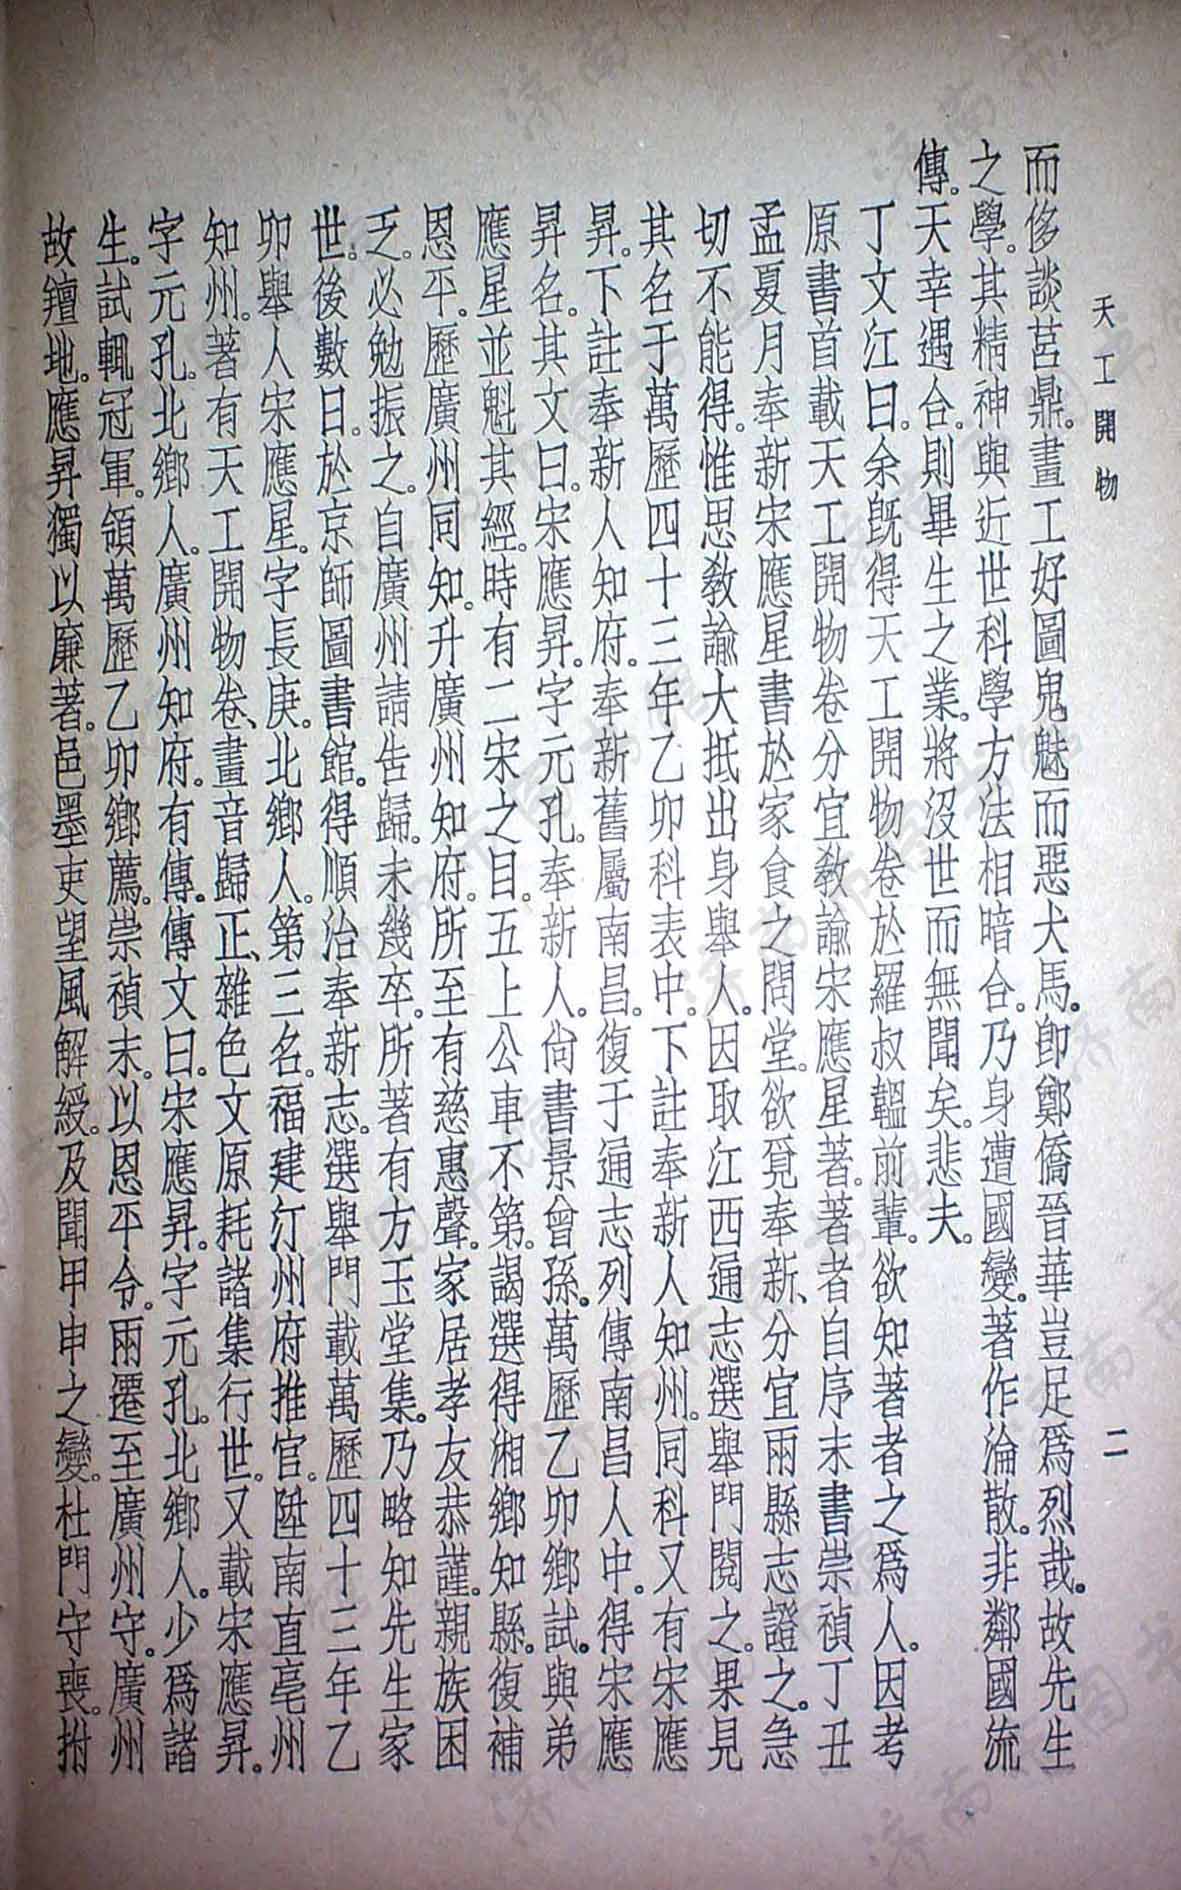 天工開物
二
而侈談莒鼎。畫工好圖鬼魅而惡犬馬。卽鄭僑晉華豈足爲烈哉。故先生
之學。其精神與近世科學方法相暗合。乃身遭國變。著作淪散。非鄰國流
傳。天幸遇合。則畢生之業。將沒世而無聞矣。悲夫。
丁文江曰。余旣得天工開物卷於羅叔韞前輩。欲知著者之爲人。因考
原書首載天工開物卷分宜敎諭宋應星著。著者自序末書崇禎丁丑
孟夏月奉新宋應星書於家食之問堂。欲覓奉新、分宜兩縣志證之。急
切不能得。惟思敎諭大抵出身舉人。因取江西通志選舉門閱之。果見
其名于萬歷四十三年乙卯科表中。下註奉新人知州。同科又有宋應
昇。下註奉新人知府。奉新舊屬南昌。復于通志列傳南昌人中。得宋應
昇名。其文曰。宋應昇。字元孔。奉新人。尙書景曾孫。萬歷乙卯鄉試。與弟
應星並魁其經。時有二宋之目。五上公車不第。謁選得湘鄉知縣。復補
恩平。歷廣州同知。升廣州知府。所至有慈惠聲。家居孝友恭謹。親族困
乏。必勉振之。自廣州請告歸。未幾卒。所著有方玉堂集。乃略知先生家
世。後數日。於京師圖書館。得順治奉新志。選舉門載萬歷四十三年乙
卯舉人宋應星。字長庚。北鄉人。第三名。福建汀州府推官。陞南直亳州
知州。著有天工開物卷、畫音歸正、雜色文原耗諸集行世。又載宋應昇。
字元孔。北鄉人。廣州知府。有傳。傳文曰。宋應昇。字元孔。北鄉人。少爲諸
生。試輒冠軍。領萬歷乙卯鄉薦。崇禎末。以恩平令。兩遷至廣州守。廣州
故羶地。應昇獨以廉著。邑墨吏望風解綬。及聞甲申之變。杜門守喪。拊